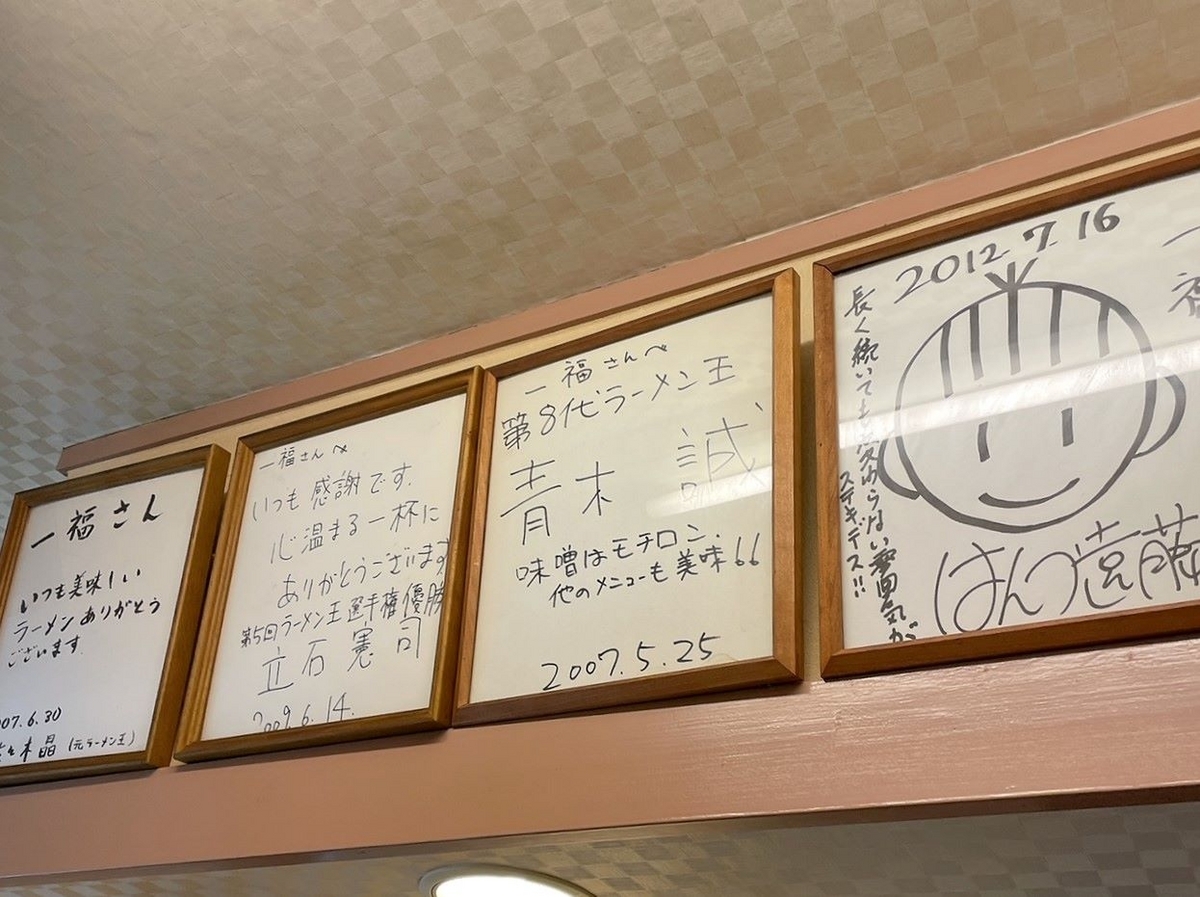 一福さん
いつも美味しい
ラーメンありがとう
ございます
007.6.30
木晶 (元ラーメン王)
一福さんへ
いつも感謝です.
心温まる一杯に
ありがとうございます
第5回ラーメン王選手権優勝
立石憲司
2009.6.14.
一福さんへ
第8代ラーメン王
青木誠
味噌はモチロン.
他のメニューも美味い!!
2007.5.25
2012.7.16
一福
長く続いても変わらない雰囲気が
ステキデス!!
はんつ遠藤